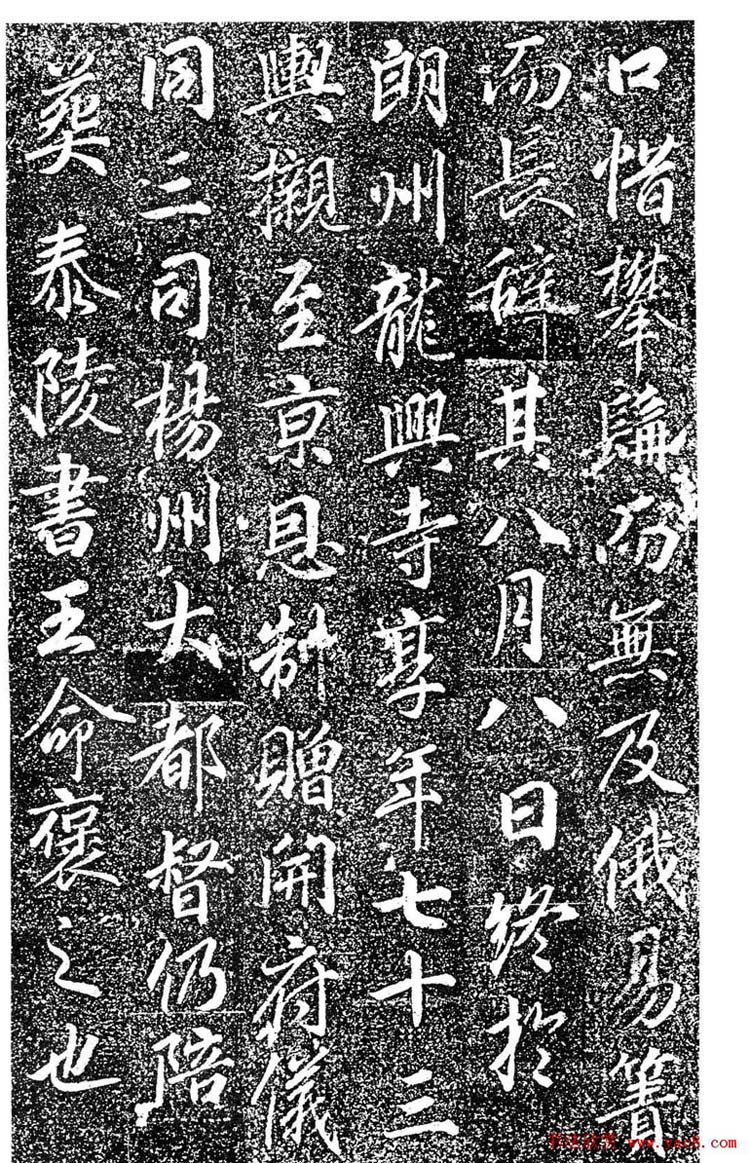 口惜攀髯而無及俄易簀
而長辭其八月八日終於
朗州龍興寺享年七十三
輿櫬至京恩制贈開府儀
同三司楊州大都督仍陪
葬泰陵書王命褒之也
书法欣赏 www.yac8.com